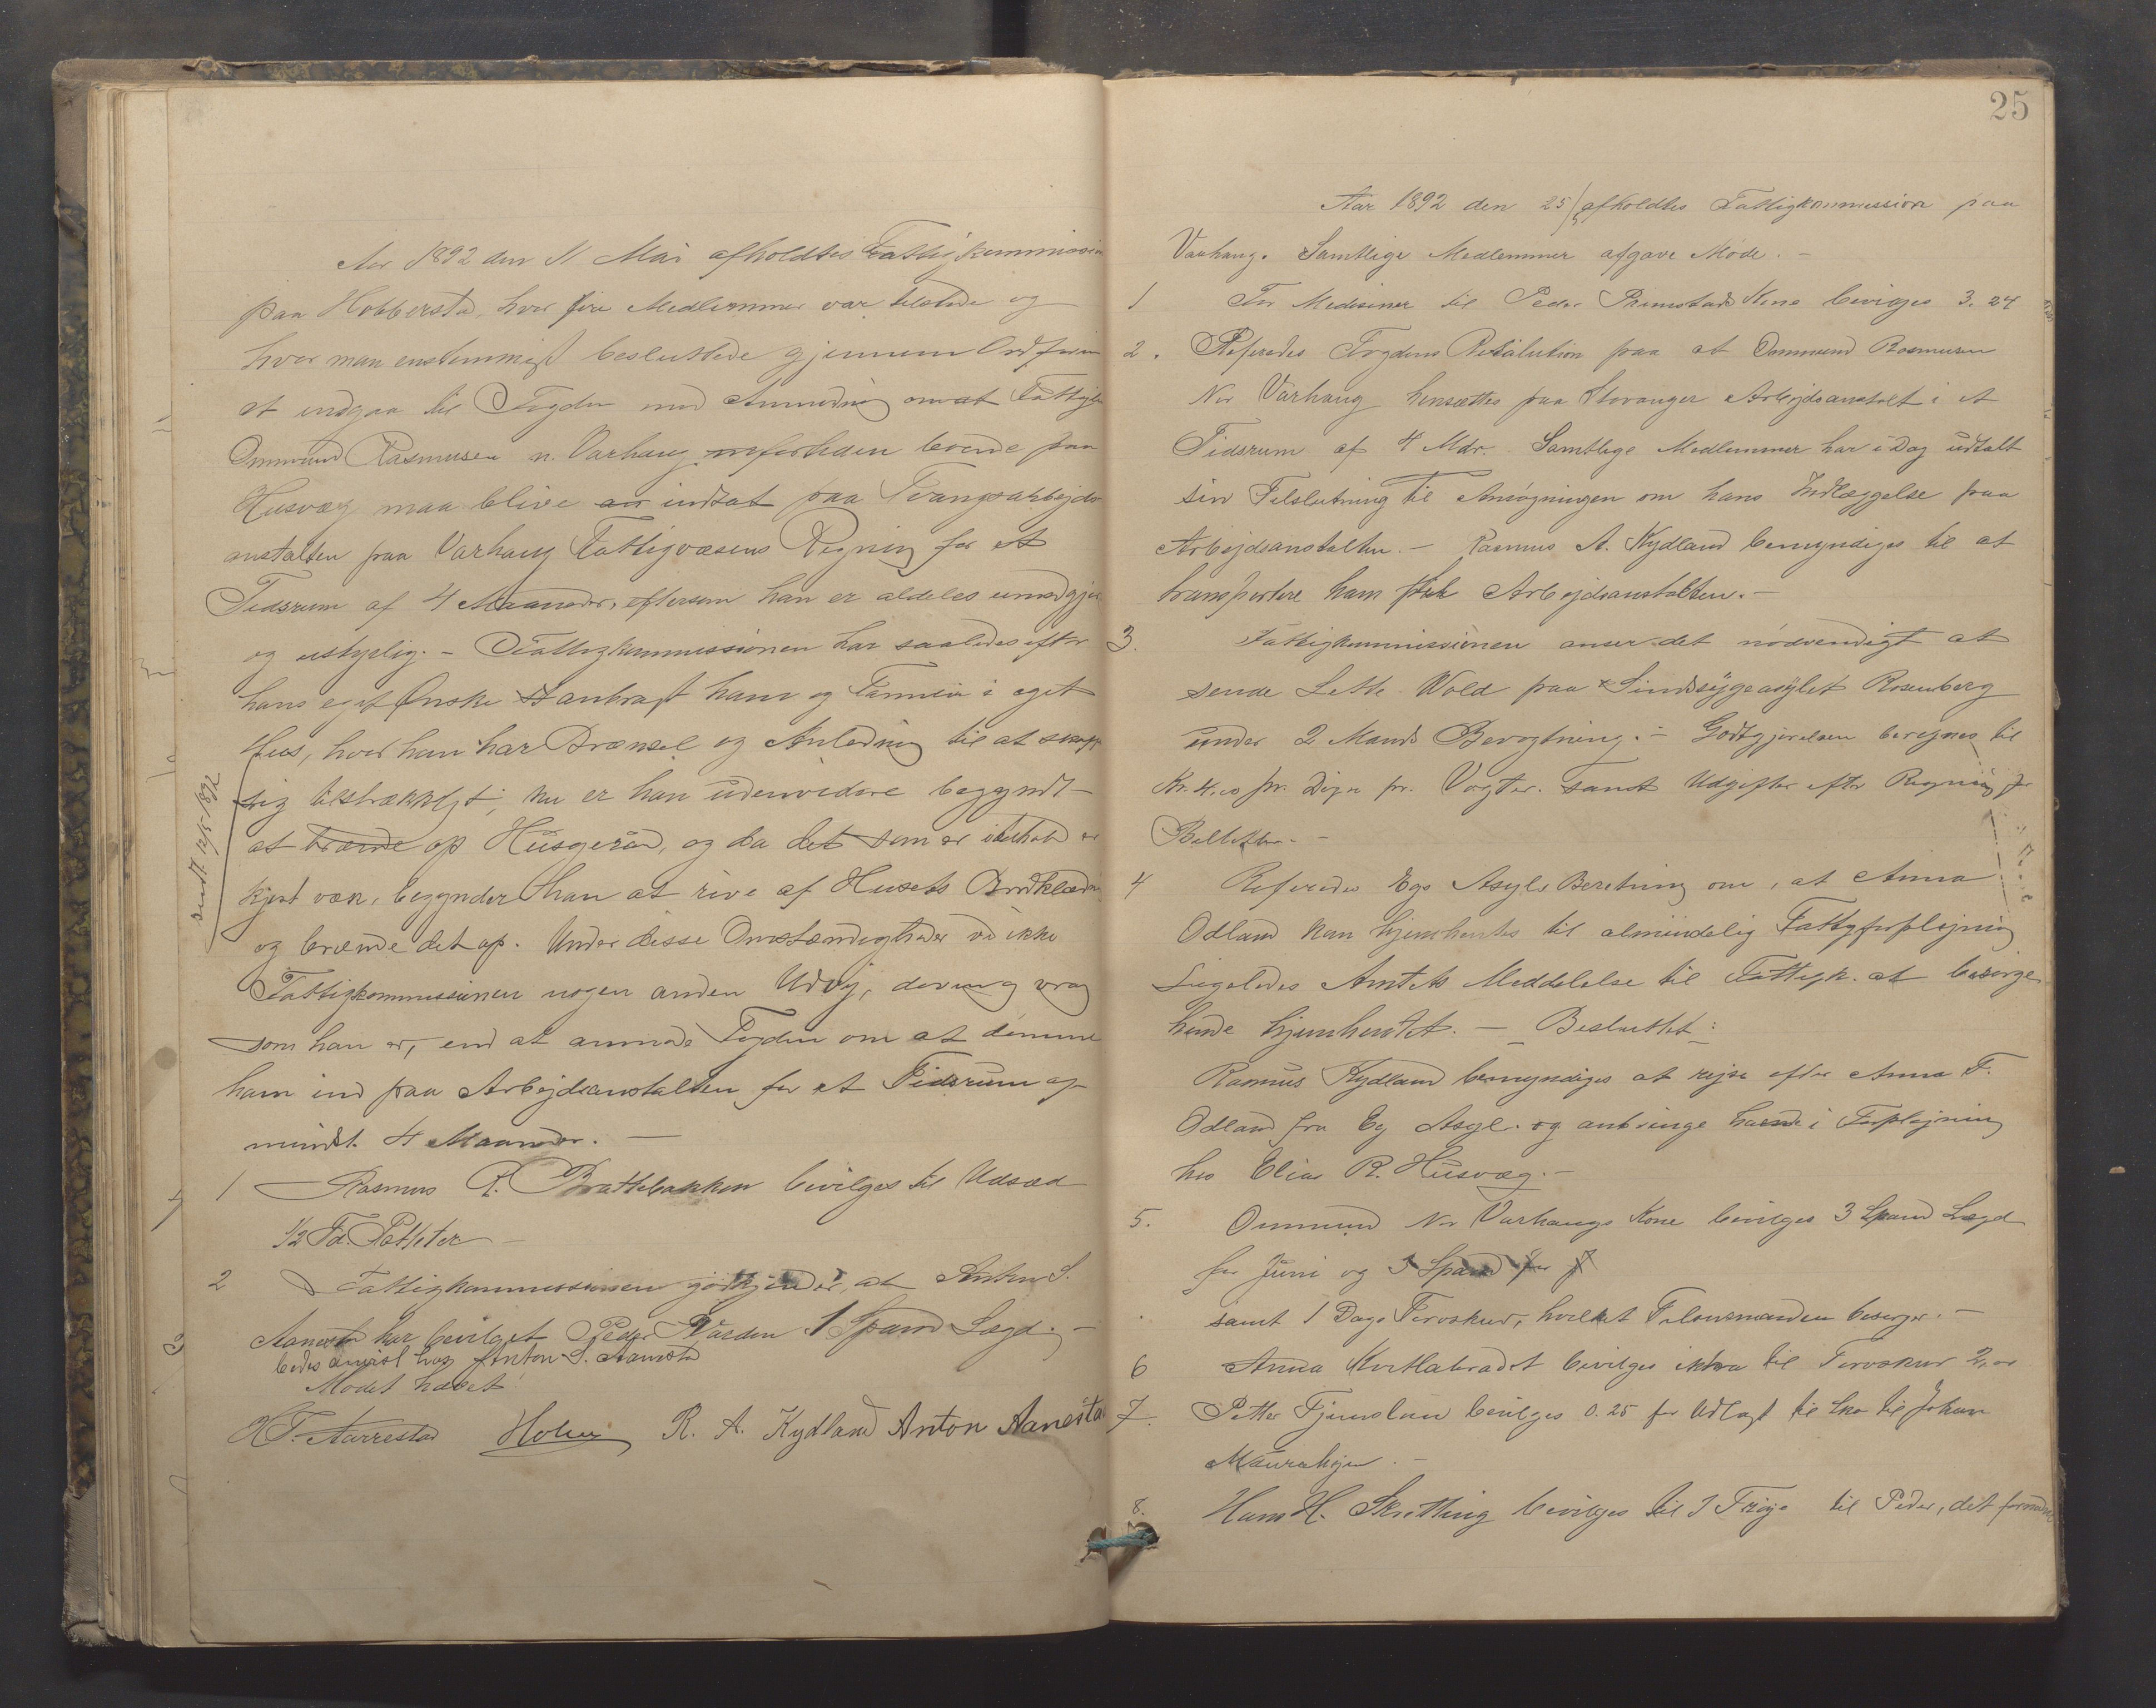 Aar 1892 den 11 Mai afholdtes Fattigkommission
paa Hobberstad, hvor fire Medlemmer var tilstede og
hvor man enstemmigt besluttede gjennem Ordføren
at indgaa til Fogden med Anmodning om at Fattigl.
Ommund Rasmusen n. Varhaug forhden boende paa
Husvæg maa blive indsat paa Tvangsarbejds
anstalten paa Varhaug Fattigvæsens Regning for et
Tidsrum af 4 Maaneder, eftersom han er aldeles umedgjør
og ustyrlig. - Fattigkommissionen har saaledes efter
hans eget Ønske anbragt ham og Familie i eget
Hus, hvor han har Brænsel og Anledning til at skaffe
sig tilstrækkeligt; nu er han udenvidere begyndt
at brænde op Husgeraad, og da det som er
kjørt væk, begynder han at rive af Husets Bordklædning
og brænde det op. Under disse Omstændigheder ved ikke
Fattigkommissionen nogen anden Udvej, doven og vrag
som han er, end at anmode Fogden om at dømme
ham ind paa Arbejdsanstalten for et Tidsrum af
mindst 4 Maaneder. —
sendt 12/5 1892
1 Rasmus R. Brattebakken bevilges til Udsæd
1/2 Td. Potteter -
2 Fattigkommissionen godkjender, at Anton S.
Aanestad har bevilget Peder Varden 1 Spand Lægd. -
bedes anvist hos Anton S. Aanestad
Mødet hævet
K. T. Aarrestad Holen R. A. Kydland Anton Aanesta
25
Aar 1892 den 25/5 afholdtes Fattigkommission paa
Varhaug. Samtlige Medlemmer afgave Møde. -
1 For Medisiner til Peder Rimstads Kone bevilges 3.24
2. Referedes Fogdens Resolution paa at Ommund Rasmusen
Nr Varhaug hensættes paa Stavanger Arbejdsanstalt i et
Tidsrum af 4 Mdr. Samtlige Medlemmer har i Dag udtalt
sin Tilslutning til Ansøgningen om hans Indlæggelse paa
Arbejdsanstalten. - Rasmus A. Kydland bemyndiges til at
transportere ham til Arbejdsanstalten. -
3. Fattigkommissionen anser det nødvendigt at
sende Lette Wold paa Sindssygeasylet Rosenberg
under 2 Mands Bevogtning. - Godtgjørelsen beregnes til
Kr. 4,00 pr. Døgn pr. Vogter. samt Udgifter efter Regning for
Billetter. -
4 Referedes Egs Asyls Beretning om, at Anna
Odland kan hjemhentes til almindelig Fattigforplejning
Ligeledes Amtets Meddelelse til Fattigk. at besørge
hende hjemhentet. — Besluttet:
Rasmus Kydland bemyndiges at rejse efter Anna T.
Odland fra Eg Asyl. og anbringe hende i Forplejning
hos Elias R. Husvæg. -
5. Ommund Nr Varhaugs Kone bevilges 3 Spand Lægd
for Juni og 3 Spand for J
samt 1 Dags Torvskur, hvilket Tilsynsmanden besørger. -
6 Anna Kvitlabradet bevilges til Torvskur 2,00
7. Petter Fjemslun bevilges 0.25 for Udlagt til Sko til Johan
Maurahejen. -
8. Hans H. Skretting bevilges til 1 Trøje til Peder, det fornødne